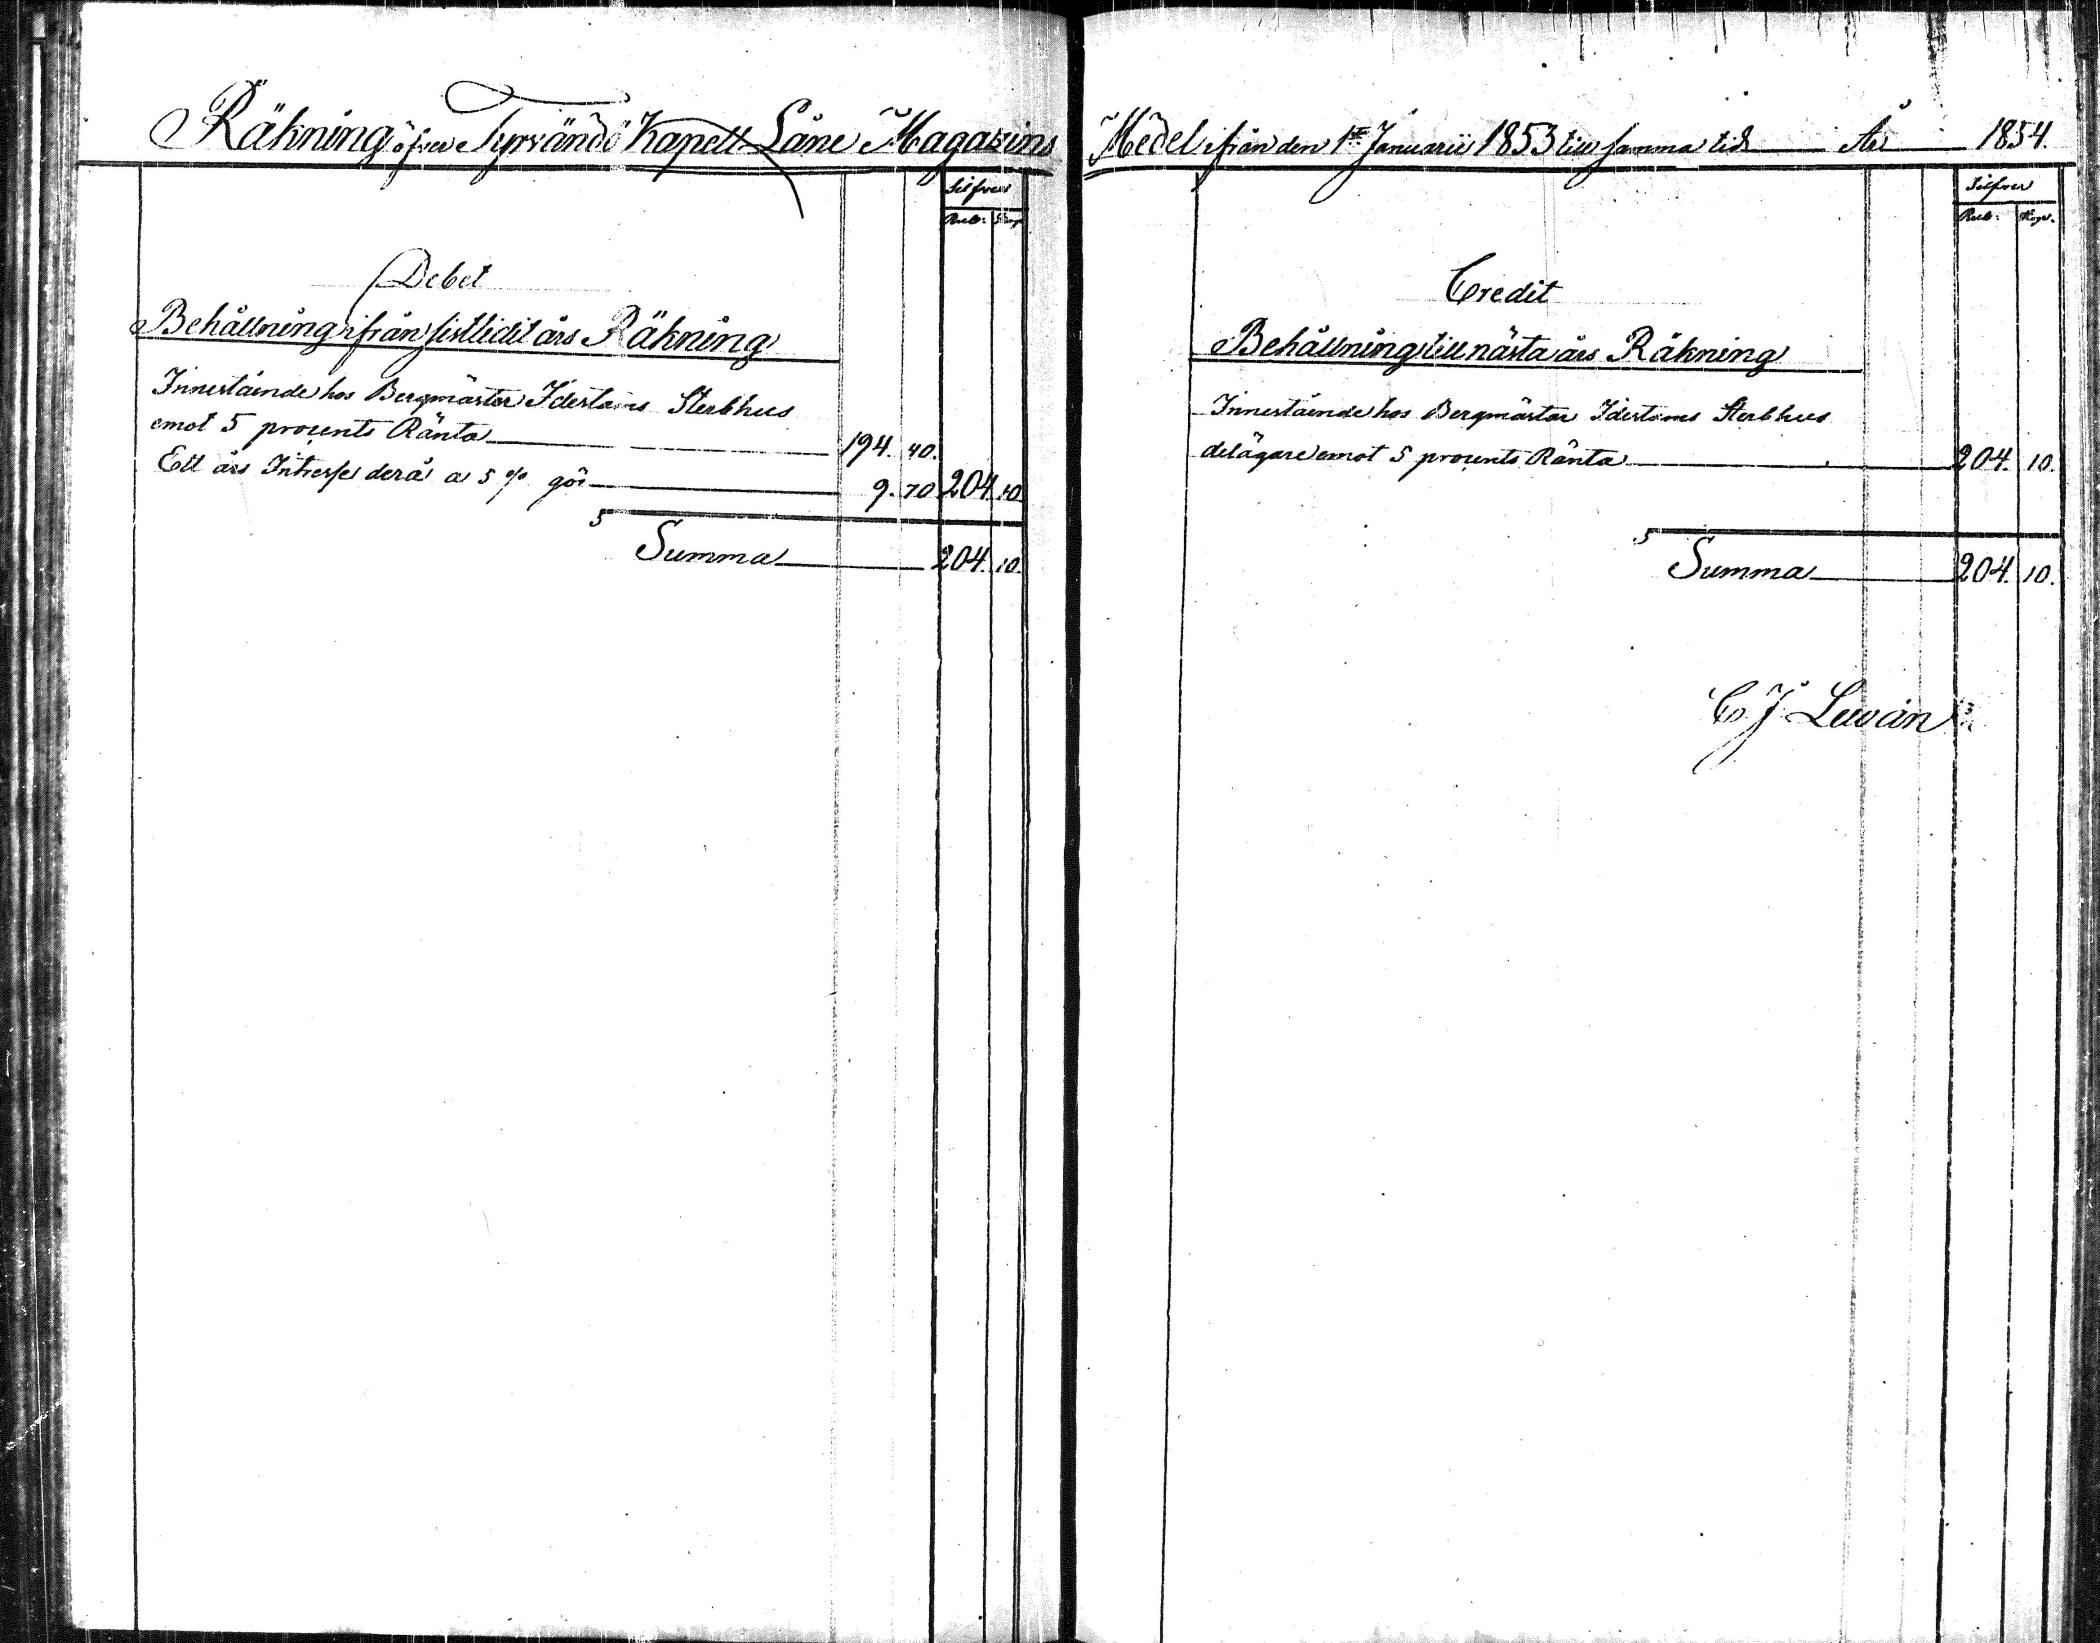 Räkning öfver Tyrvändö Kapell Låne Magazins
Silfver
Rub: Kop
Debet
Behållning ifrån sistledit års Räkning
Innestående hos Bergmäster Idestams Sterbhus
emot 5 procents Ränta 194. 40.
Ett års Intresse derå a 5 % gör 9. 70 204 10
Summa 204. 10.
Medel ifrån den 1ste Januarii 1853 till samma tid År 1854.
Silfver
Rub: Kop.
Credit
Behållning till nästa års Räkning
Innestående hos Bergmäster Idestams Sterbhus
delägare emot 5 procents Ränta 204. 10.
Summa 204. 10.
C J